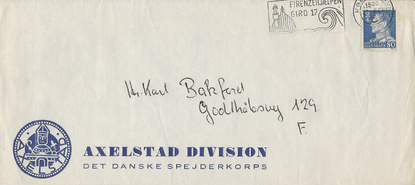 FIRENZEHJÆLPEN
GIRO 17
80
Hr. Karl Bakford
Godthåbsvej 129
F.
AXELSTAD DIVISION
DET DANSKE SPEJDERKORPS